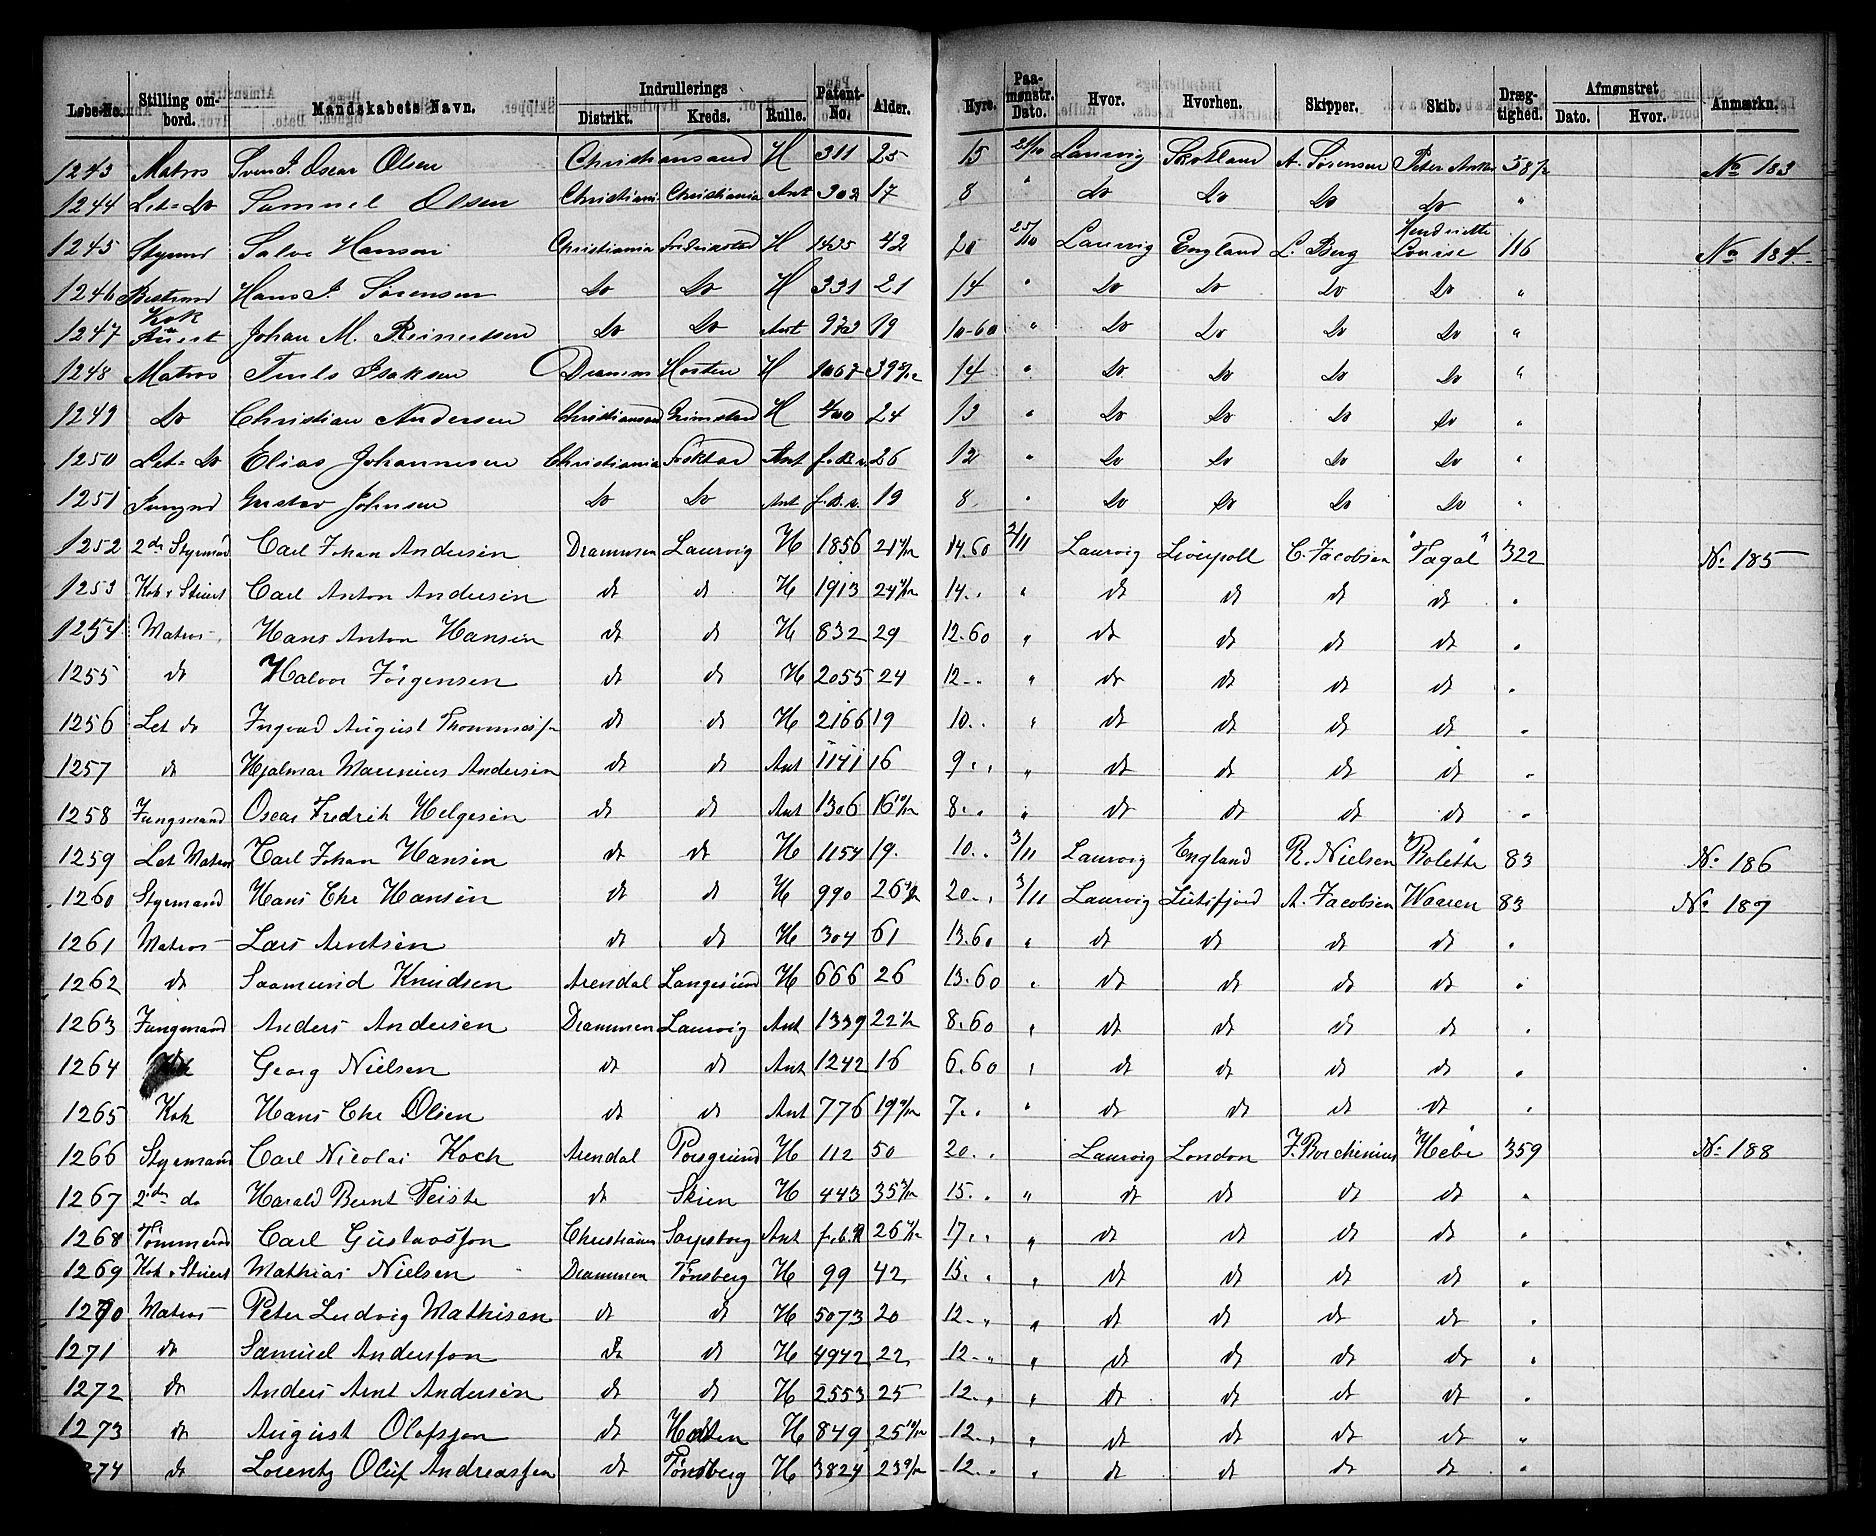 Løbe-No. Stilling ombord. Mandskabets Navn. Indrullerings Distrikt. Kreds. Rulle. Patent-No. Alder. Hyre. Paamønstr. Dato. Hvor. Hvorhen. Skipper. Skib. Drægtighed. Afmønstret Dato. Hvor. Anmærkn.
1243 Matros Svend J. Oscar Olsen Christiansand H 311 25 15 Laurvig Skotland A. Sørensen Peter Anker No 183
1244 Let= Do Samuel Olsen Christiania Christiania Ant 302 17 8 " Do Do Do Do "
1245 Styrmd Salve Hanson Christiania Fredrikstad H 1425 42 20 25/10 Laurvig England L. Berg Hendriette Louise 116 No 184.
1246 Bestmnd Hans J. Sørensen Do Do H 331 21 14 " Do Do Do Do "
1247 Kok & Stuert Johan M. Reinertsen Do Do Ant 19 10-60 " Do Do Do Do "
1248 Matros Isaksen Drammen Horten H 1067 14 " Do Do Do Do "
1249 Do Christian Andersen Christiansand Grimstad H 400 24 13 " Do Do Do Do "
1250 Let= Do Elias Johannesen Christiania Ant 26 12 " Do Do Do Do "
1251 Jungmd Gustav Johnsen Do Do Ant 19 8 " Do Do Do Do "
1252 2den Styrmand Carl Johan Andersen Drammen Laurvig H 1856 14.60 2/11 Laurvig Liverpoll C. Jacobsen "Tagal" 322 No 185
1253 Kok & Stuert Carl Anton Andersen dt dt H 1913 14.. " dt dt dt dt "
1254 Matros Hans Anton Hansen dt dt H 832 29 12.60 " dt dt dt dt "
1255 dt Halvor Jörgensen dt dt H 2055 24 12.. " dt dt dt dt "
1256 Let do Ingvald August Thommasen dt dt H 2166 19 10.. " dt dt dt dt "
1257 dt Hjalmar Maurius Andersen dt dt Ant 1141 16 9.. " dt dt dt dt "
1258 Jungmand Oscar Fredrik Helgesen dt dt Ant 1306 16 10/12 8.. " dt dt dt dt "
1259 Let Matros Carl Johan Hansen dt dt H 1154 19. 10.. 3/11 Laurvig England R. Nielsen "Rolette" 83 No 186
1260 Styrmand Hans Chr Hansen dt dt H 990 20.. 3/11 Laurvig A. Jacobsen Waaren 83 No 187
1261 Matros Lars Arntsen dt dt H 304 61 13.60 " dt dt dt dt "
1262 dt Saamund Knudsen Arendal Langesund H 666 26 13.60 " dt dt dt dt "
1263 Jungmand Anders Andersen Drammen Laurvig Ant 1339 22 1/2 8.60 " dt dt dt dt "
1264 Georg Nielsen dt dt Ant 1242 16 6.60 " dt dt dt dt "
1265 Kok Hans Chr Olsen dt dt Ant 776 7.. " dt dt dt dt "
1266 Styrmand Carl Nicolai Koch Arendal Porsgrund H 112 50 20.. Laurvig London J. Borchenius "Hebe" 359 No 188
1267 2den do Harald Bernt Feiste dt Skien H 443 15.. " dt dt dt dt "
1268 Tömmerm Carl Gustavsson Christiania Sarpsborg Ant 17.. " dt dt dt dt "
1269 Kok & Stuert Mathias Nielsen Drammen Tönsberg H 99 42 13.. " dt dt dt dt "
1270 Matros Peter Ludvig Mathisen dt dt H 5073 20 12.. " dt dt dt dt "
1271 do Samuel Andersson dt dt H 4942 22 12.. " dt dt dt dt "
1272 do Anders Arnt Andersen dt dt H 2553 25 12.. " dt dt dt dt "
1273 dt August Olofsson dt Horten H 849 25 10/12 12.. " dt dt dt dt "
274 dt Lorentz Oluf Andreassen dt Tönsberg H 3824 12.. " dt dt dt dt "